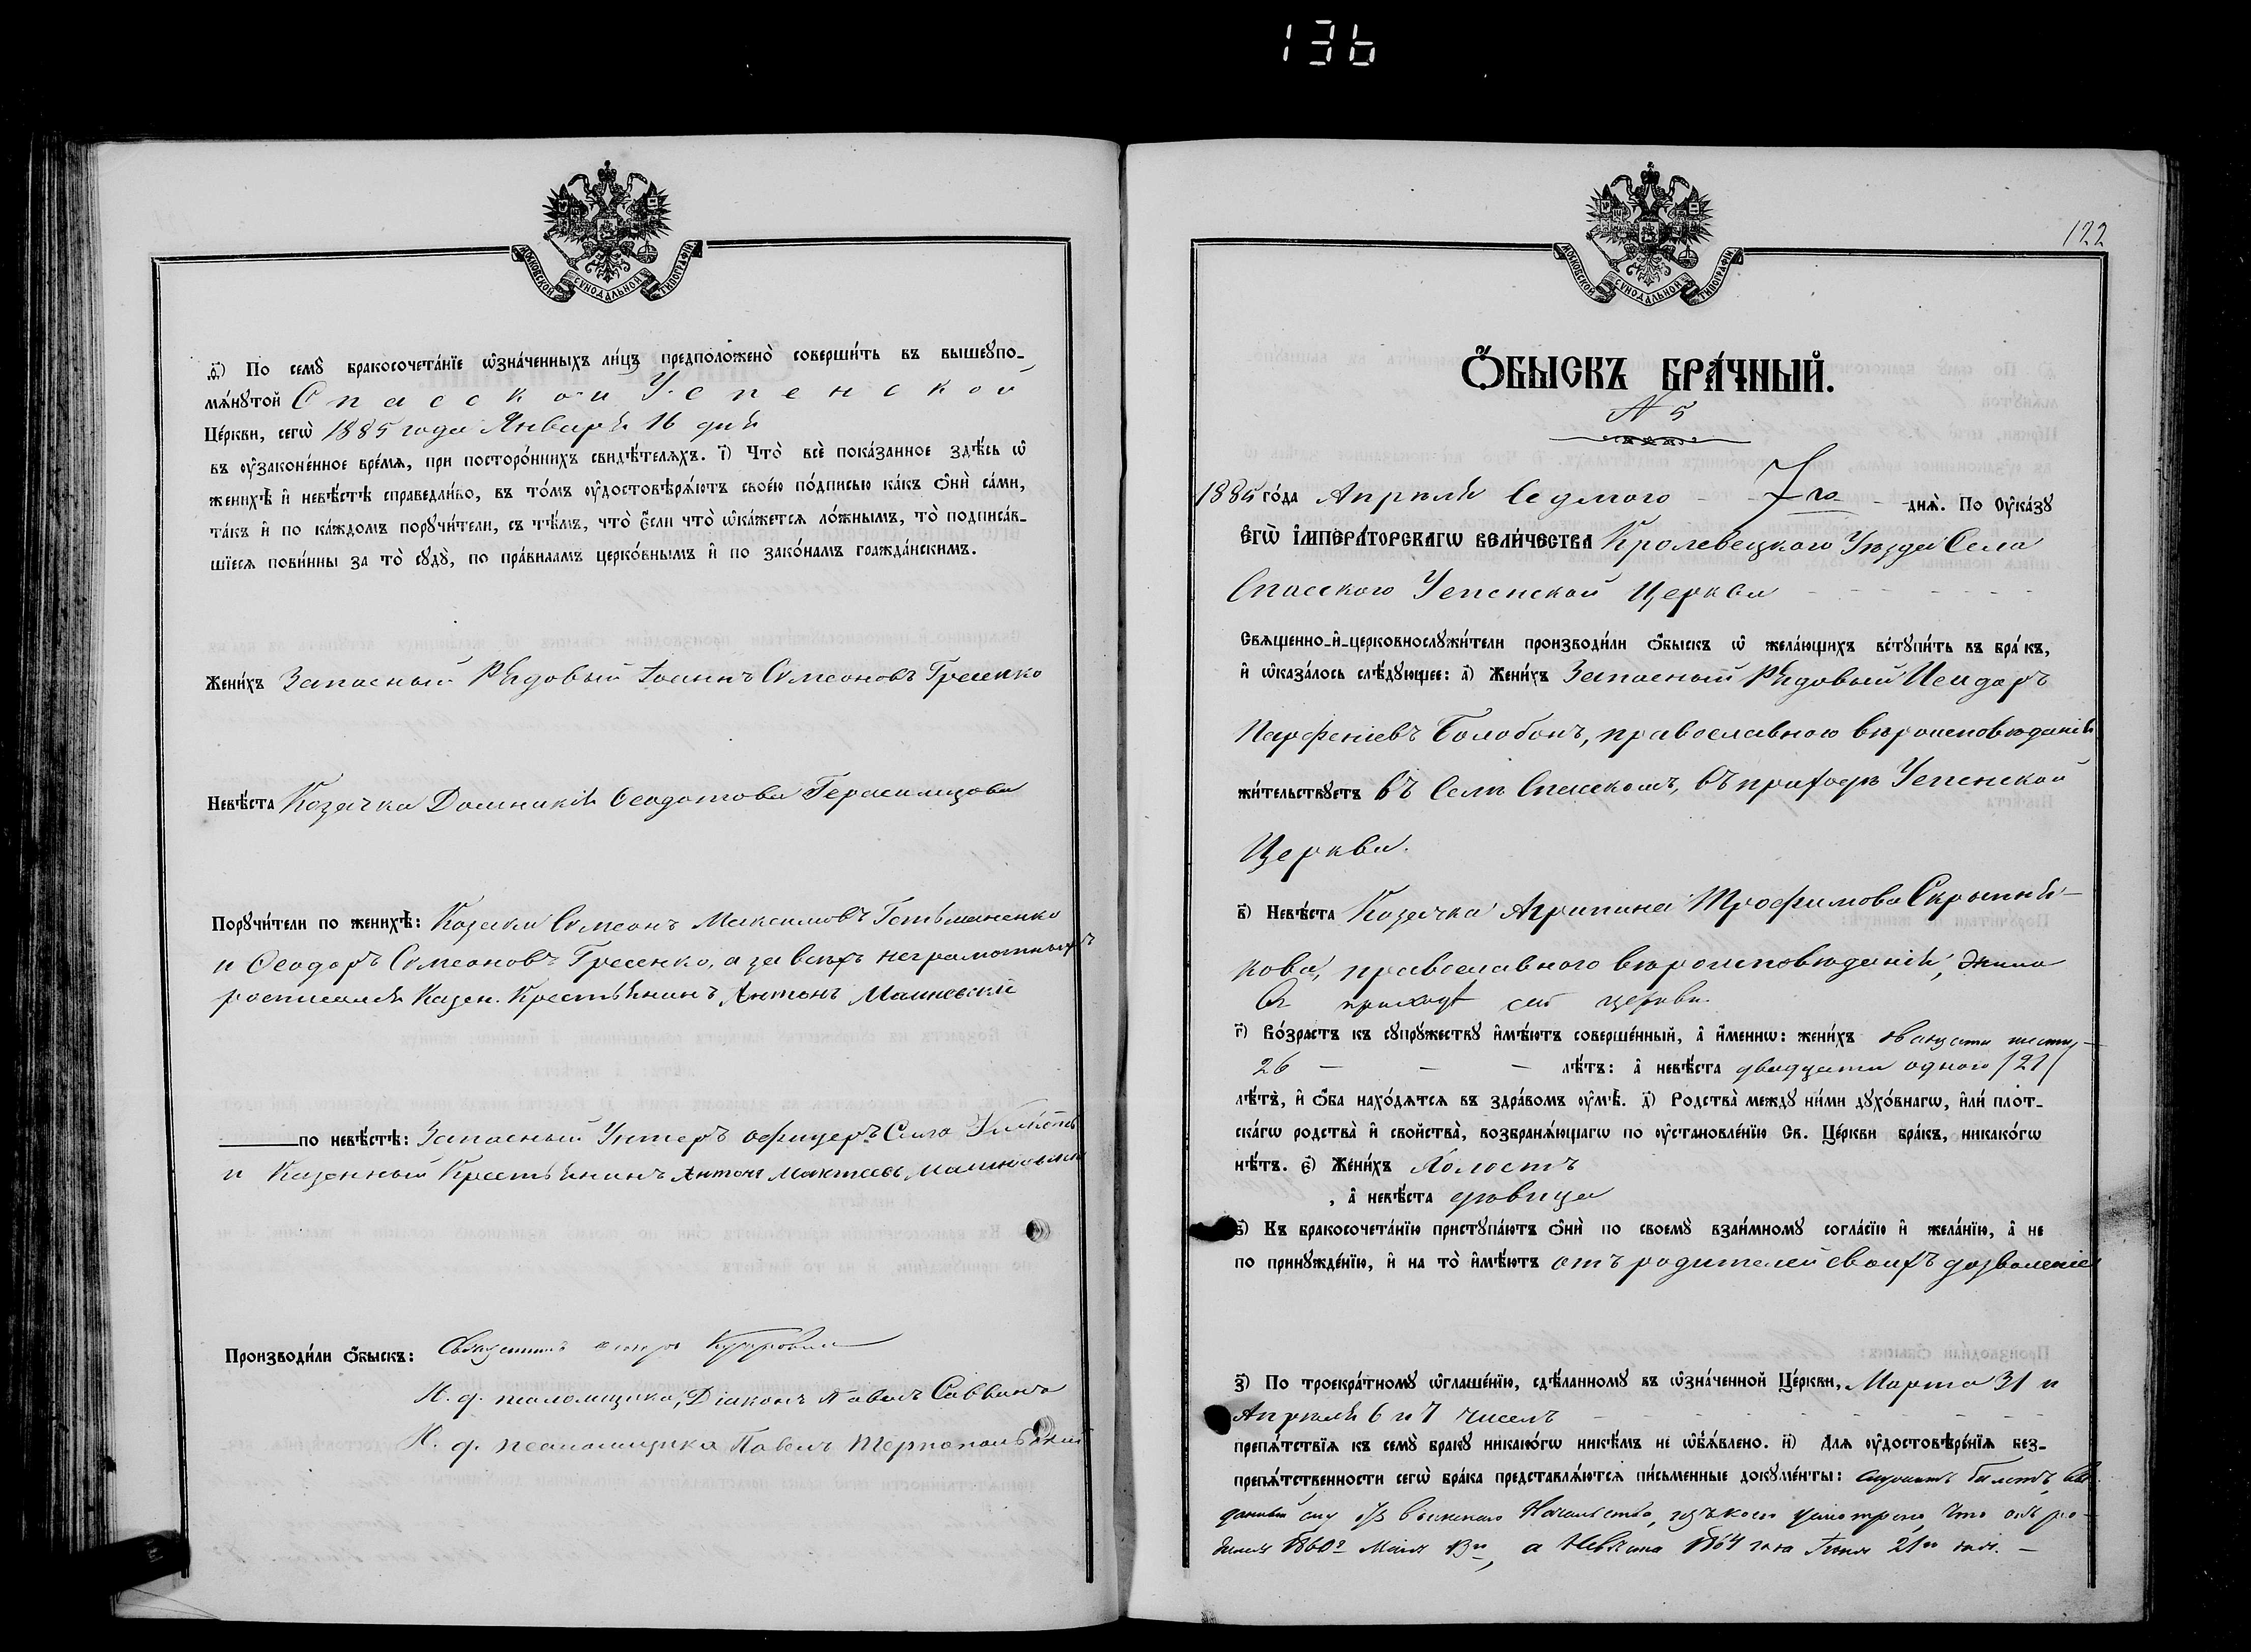 136
МОСКОВСКОЙ СѴНОДАЛЬНОЙ ТИПОГРАФІИ
ѳ҃) По семꙋ̀ бракосочета́нїе ѡ҆зна́ченныхъ ли́цъ предположенò соверши́ть въ вышеꙋпо-
мѧ́нꙋтой Спасской Успенской
Це́ркви, сегѡ̀ 1885 года Января 16 дня
въ ᲂу҆законе́нное вре́мѧ, при посторо́ннихъ свидѣ́телѧхъ. і҃) Чтò всѐ пока́занное здѣ́сь ѡ҆
женихѣ̀ и҆ невѣ́стѣ справедли́во, въ то́мъ ᲂу҆достовѣрѧ́ютъ свое́ю по́дписью ка́къ ѻ҆нѝ са́ми,
та́къ и҆ по ка́ждомъ порꙋчи́тели, съ тѣ́мъ, чтò є҆́сли чтò ѡ҆ка́жетсѧ ло́жнымъ, тò подписа́в-
шїесѧ пови́нны за тò сꙋдꙋ̀, по пра́виламъ церко́внымъ и҆ по зако́намъ гражда́нскимъ.
Жени́хъ Запасный Рядовый Іоаннъ Симеоновъ Гресенко
Невѣ́ста Козачка Домникія Ѳеодотова Герасимцова
Порꙋчи́тели по женихѣ̀: Козаки Симеонъ Максимовъ Гетьманенко
и Ѳеодоръ Симеоновъ Гресенко, а за всѣхъ неграмотныхъ
росписался Казен. Крестьянинъ Антонъ Малневскій
по невѣ́стѣ: Запасный Унтеръ офицеръ Сила
и Казенный Крестьянинъ Антонъ
Производи́ли ѻ҆́быскъ: Священникъ
И. д. псаломщика, Діаконъ Павелъ Саввинъ
И. д. псаломщика Павелъ Тернопольскій
122
МОСКОВСКОЙ СѴНОДАЛЬНОЙ ТИПОГРАФІИ
Ѻ҆́БЫСКЪ БРА́ЧНЫЙ.
№ 5
1885 го́да Апрѣля Седмого 7го днѧ̀. По Оу҆ка́зꙋ
Є҆гѡ̀ І҆мпера́торскагѡ вели́чества Кролевецкого Уѣзда Села
Спасского Успенской Церкви
Свѧщенно-и҆-церковнослꙋжи́тели производи́ли ѻ҆́быскъ ѡ҆ жела́ющихъ встꙋпи́ть въ бра́къ,
и҆ ѡ҆каза́лось слѣ́дꙋющее: а҃) Жени́хъ Запасный Рядовый Исидоръ
Парфеніевъ Болобонъ, православного вѣроисповѣданія
жи́тельствꙋетъ въ Селѣ Спасскомъ, въ приходѣ Успенской
Церкви.
в҃) Невѣ́ста Козачка Агрипина Трофимова Скрыпня-
кова, православного вѣроисповѣданія, жила
въ приходѣ сей церкви.
г҃) Во́зрастъ къ сꙋпрꙋ́жествꙋ и҆мѣ́ютъ соверше́нный, а҆ и҆́меннѡ: жени́хъ двадцати шести
26 лѣ́тъ: а҆ невѣ́ста двадцати одного /21/
лѣ́тъ, и҆ ѻ҆́ба нахо́дѧтсѧ въ здра́вомъ ᲂу҆мѣ̀. д҃) Родства̀ междꙋ ни́ми дꙋхо́внагѡ, и҆лѝ плот-
ска́гѡ родства̀ и҆ свойства̀, возбранѧ́ющагѡ по ᲂу҆становле́нїю Св. Це́ркви бра́къ, никако́гѡ
нѣ́тъ. є҃) Жени́хъ Холостъ
, а҆ невѣ́ста дѣвица
ѕ҃) Къ бракосочета́нїю пристꙋпа́ютъ ѻ҆нѝ по своемꙋ̀ взаи́мномꙋ согла́сїю и҆ жела́нїю, а҆ не
по принꙋжде́нїю, и҆ на тò и҆мѣ́ютъ отъ родителей своихъ дозволеніе
з҃) По троекра́тномꙋ ѡ҆глаше́нїю, сдѣ́ланномꙋ въ ѡ҆зна́ченной Це́ркви, Марта 31 и
Апрѣля 6 и 7 чиселъ
препѧ́тствїѧ къ семꙋ̀ бра́кꙋ никако́гѡ никѣ́мъ не ѡ҆б̾ѧ́влено. и҃) Для ᲂу҆достовѣре́нїѧ без-
препѧ́тственности сегѡ̀ бра́ка представлѧ́ютсѧ пи́сьменные докꙋме́нты: билетъ, вы
данный ему Начальства, изъ коего усмотрено, что онъ ро-
дился 1860г Мая 13го, а Невѣста 1864 года Іюня 21го дня.